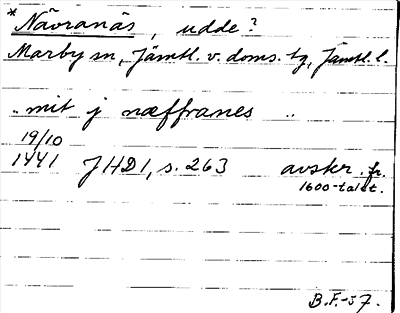 *Nävranäs, udde?
Marby sn, Jämtl. v. doms. tg, Jämtl. l.
„mit j næffranes „
19/10
1441 JHD1, s. 263 avskr. fr.
1600-talet.
B.F.-57.